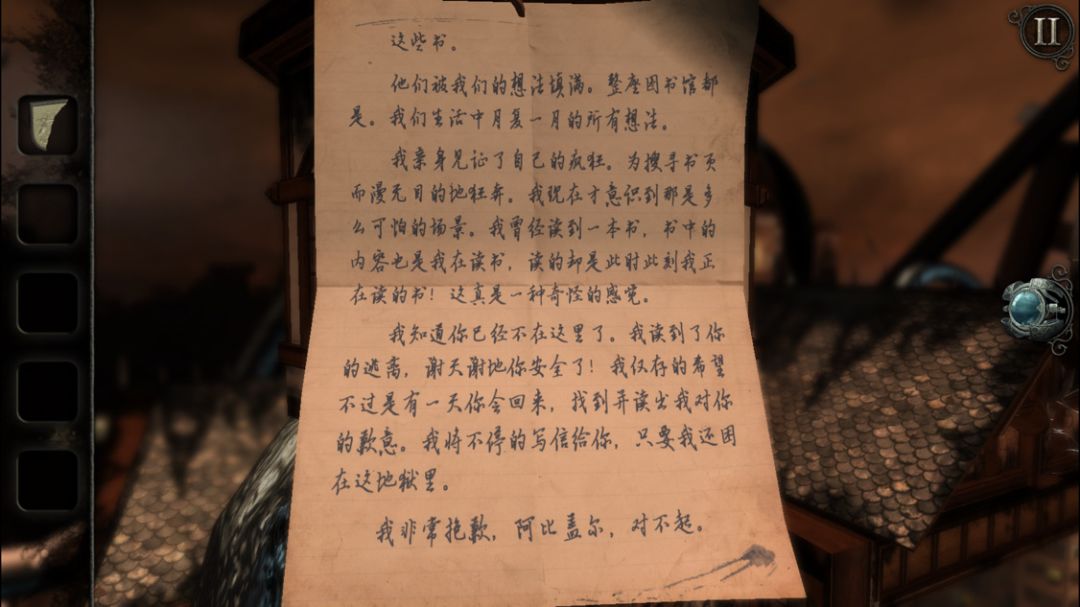 这些书。
他们被我们的想法填满。整座图书馆都
是。我们生活中月复一月的所有想法。
我亲身见证了自己的疯狂。为搜寻书页
而漫无目的地狂奔。我现在才意识到那是多
么可怕的场景。我曾经读到一本书，书中的
内容也是我在读书，读的却是此时此刻我正
在读的书！这真是一种奇怪的感觉。
我知道你已经不在这里了。我读到了你
的逃离，谢天谢地你安全了！我仅存的希望
不过是有一天你会回来，找到并读出我对你
的歉意。我将不停的写信给你，只要我还困
在这地狱里。
我非常抱歉，阿比盖尔，对不起。